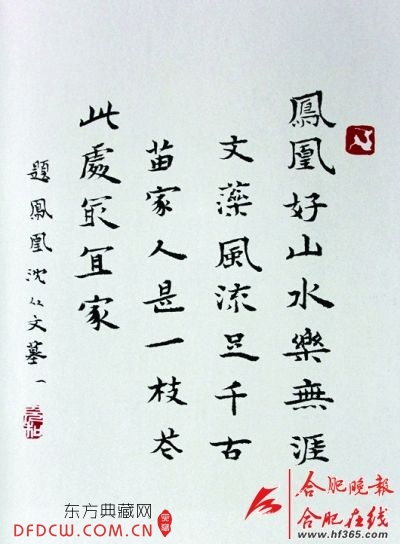 鳳凰好山水樂無涯
文藻風流足千古
苗家人是一枝花
此處最宜家
題鳳凰沈從文墓一
东方典藏网
DFDCW.COM.CN
合肥晚报
合肥在线
http://www.hf365.com